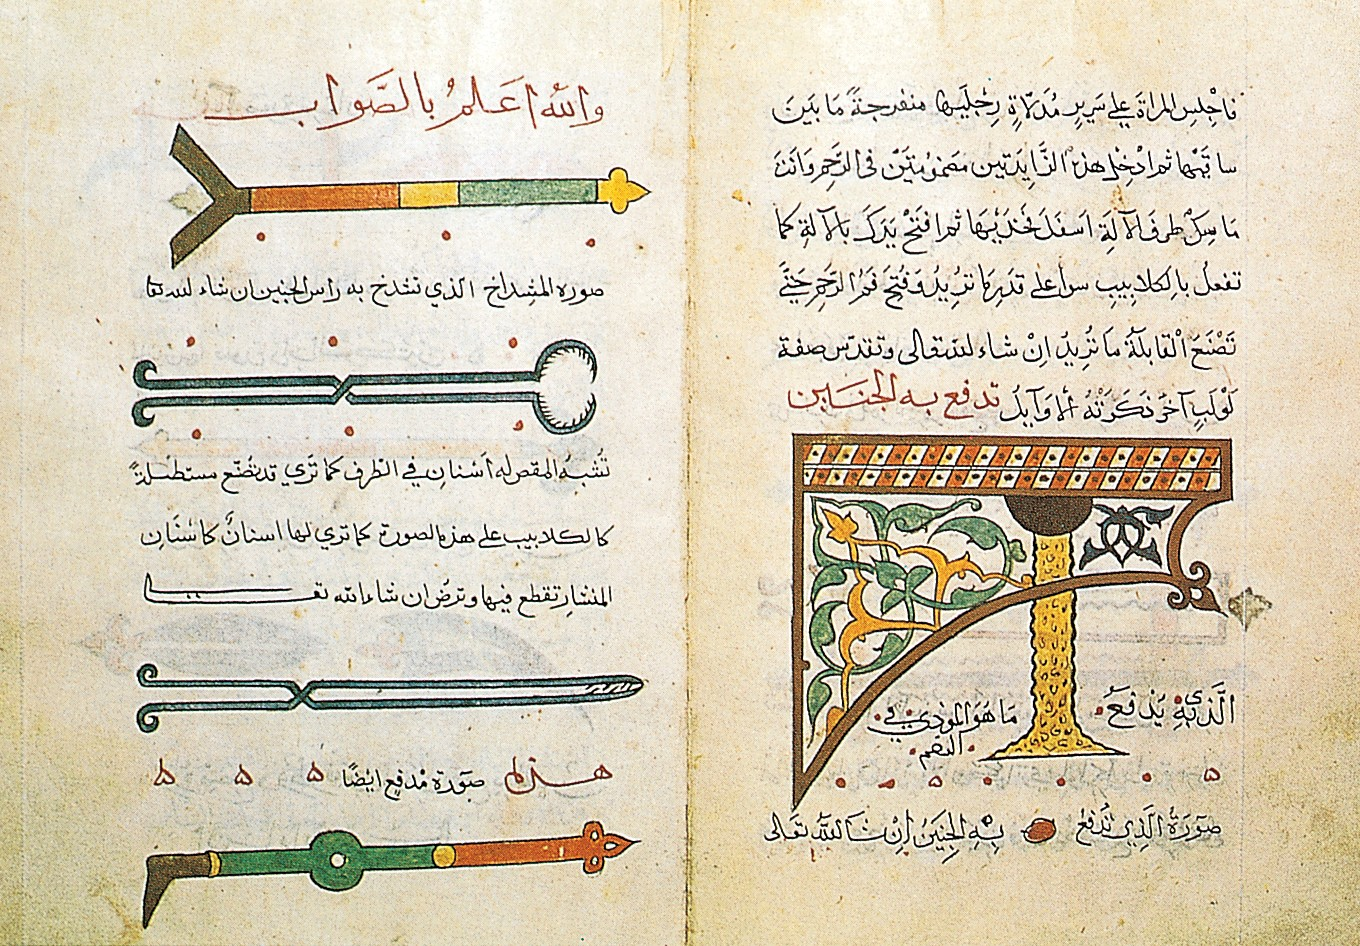 فاجلس المراة على سرير مُدَلّاةٍ رِجْليها منفرجةً مَا بَين
ساقيها ثم ادْخِل هذه الزَّايدَتين مضمُومتَين فى الرَّحِم وَانتَ
مَاسِكٌ طرفَ الآلة اسفلَ فخدَيْها ثم افتَحْ يَدَكَ بالآلةِ كما
تفعلُ بالكلاليبِ سوا على قدر ما تريدُ وَفتحَ فَمَ الرَّحِم حَتَّى
تَصْنَعَ القَابلَةُ ما تُريدُ اِنْ شاء الله تعالى وتقدّس صفة
لَوْلَبٍ آخَر ذكرَتْهُ الاوَايلُ تدفع به الجنين
الَّذي به يُدْفَعُ
مَا هُوَ المؤذي في
الفم
صُورَةُ الَّذِي تُدْفَعُ بِهِ الجَنِينَ اِنْ شَاء اللهُ تعَالى
والله اعَلمُ بالصَّواب
صوره المشداخ الذي تشدخ به راس الجنين ان شاء الله تعا
تُشبهُ المقص له اَسْنان في الطرف كما ترَي قد تصْنع مستطيلةً
كالكلاليب على هذه الصورة كما تري لها اسنانٌ كاسْنَان
المنشار تقطع فيها وترضّ ان شاء الله تعالى
هذه صُورَة مدْفع ايضًا